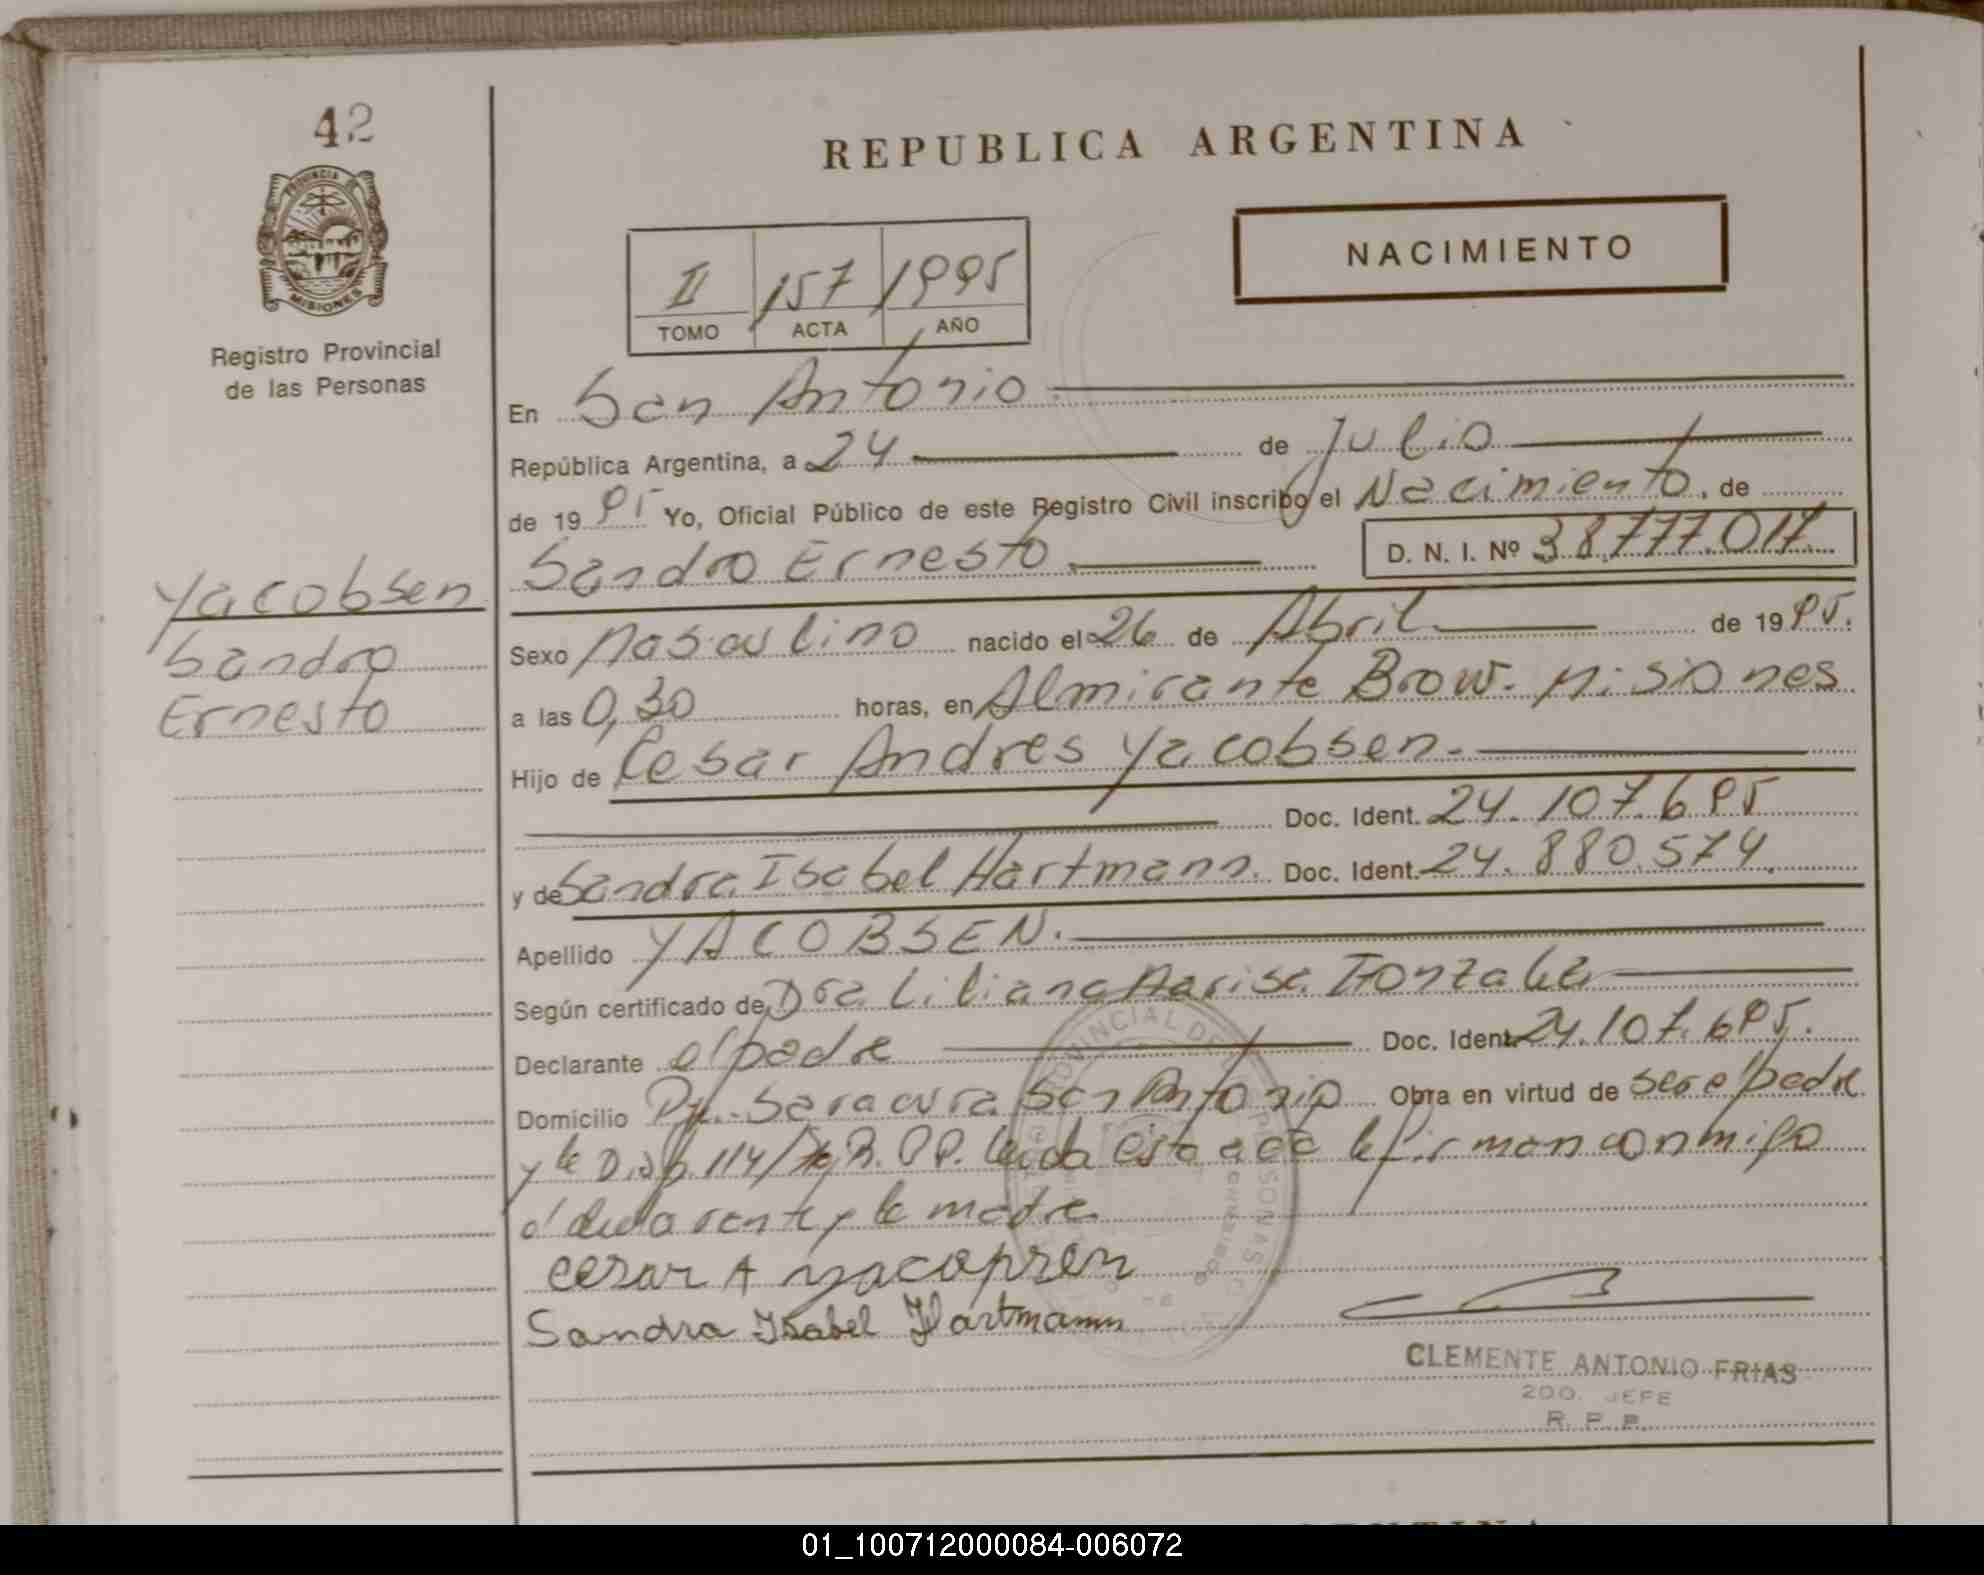 42
REPUBLICA ARGENTINA
NACIMIENTO
PROVINCIA DE
MISIONES
Registro Provincial
de las Personas
II 157 1995
TOMO ACTA AÑO
En San Antonio
República Argentina, a 24 de Julio
de 1995 Yo, Oficial Público de este Registro Civil inscribo el Nacimiento, de
Sandro Ernesto D. N. I. Nº 38.777.017
Yacobsen
Sandro
Ernesto
Sexo Masculino nacido el 26 de Abril de 1995.
a las 0,30 horas, en Almirante Brow. Misiones
Hijo de Cesar Andres Yacobsen.
Doc. Ident. 24.107.695
y de Sandra Isabel Hartmann. Doc. Ident. 24.880.574.
Apellido YACOBSEN.
Según certificado de Dra Liliana Marisa
Declarante el padre Doc. Ident. 24.107.695.
Domicilio San Antonio Obra en virtud de ser el padre
y la Disp. 114/ leida esta acta la firman conmigo
el declarante y la madre
cesar A yacopsen
Sandra Isabel Hartmann
CLEMENTE ANTONIO FRIAS
2DO. JEFE
R. P. P.
01_100712000084-006072